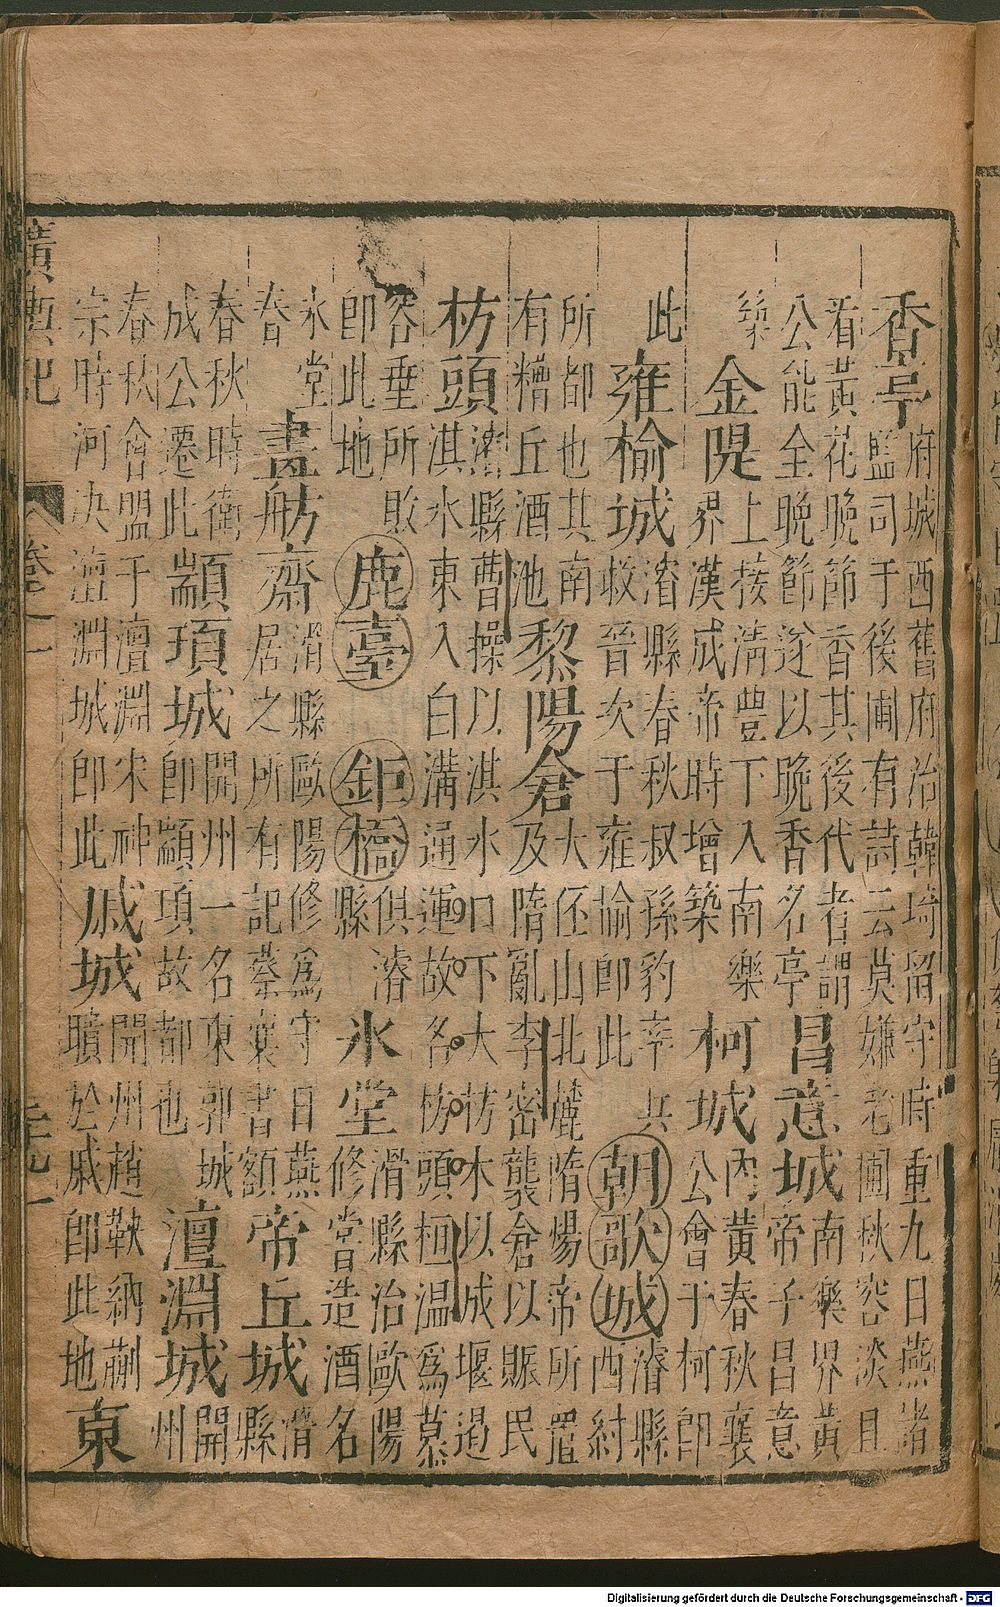 香亭府城西舊府治韓琦留守時重九日燕諸監司于後圃有詩云莫嫌老圃秋容淡且
看黃花晚節香其後代者謂公能全晚節遂以晚香名亭昌意城南樂界黃帝子昌意
築金隄上接清豐下入南樂界漢成帝時增築柯城內黃春秋襄公會于柯即
此雍榆城濬縣春秋叔孫豹率兵救晉次于雍揄即此朝歌城濬縣西紂
所都也其南有糟丘酒池黎陽倉大伾山北麓隋煬帝所置及隋亂李密襲倉以賑民
枋頭濬縣曹操以淇水口下大枋木以成堰遏淇水東入白溝通運故名枋頭桓温爲慕
容垂所敗即此地鹿臺鉅橋俱濬縣氷堂滑縣治歐陽修嘗造酒名
氷堂春畫舫齋滑縣歐陽修爲守日燕居之所有記蔡襄書額帝丘城滑縣
春秋時衛成公遷此顓頊城開州一名東郭城即顓頊故都也澶淵城開州
春秋會盟于澶淵宋神宗時河决澶淵城即此戚城開州趙鞅納蒯聵於戚即此地東
廣輿記 卷之一
Digitalisierung gefördert durch die Deutsche Forschungsgemeinschaft - DFG